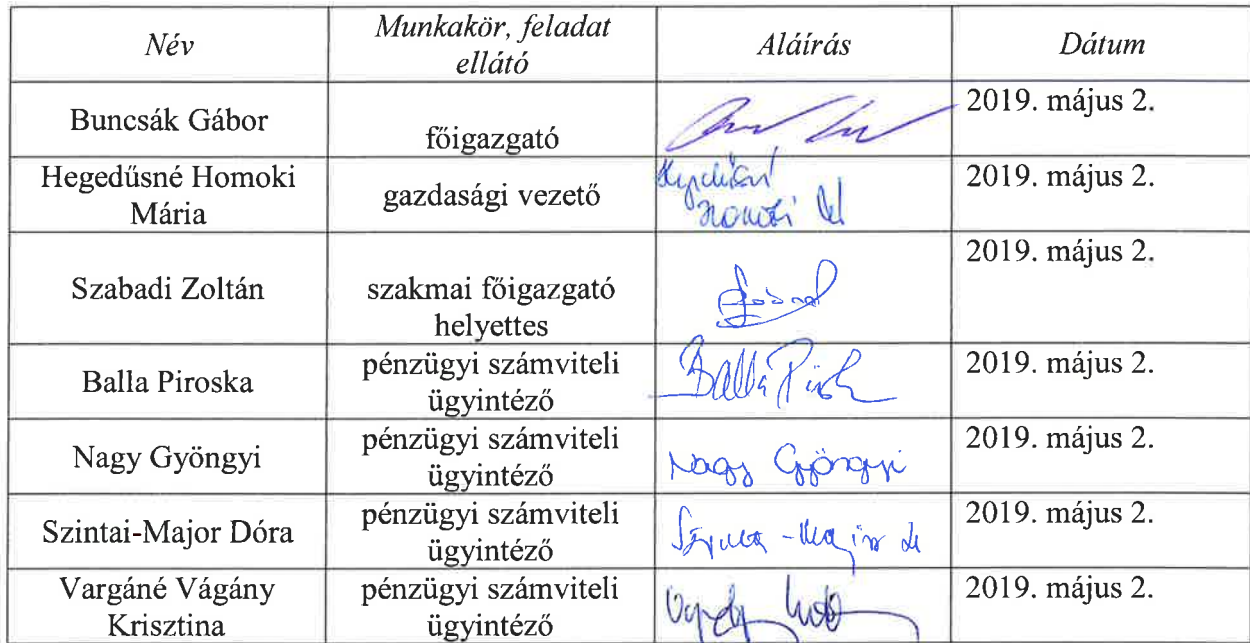 Név
Munkakör, feladat
ellátó
Aláírás
Dátum
Buncsák Gábor
főigazgató
2019. május 2.
Hegedűsné Homoki
Mária
gazdasági vezető
2019. május 2.
Szabadi Zoltán
szakmai főigazgató
helyettes
2019. május 2.
Balla Piroska
pénzügyi számviteli
ügyintéző
Balla Pirosk
2019. május 2.
Nagy Gyöngyi
pénzügyi számviteli
ügyintéző
Nagy Gyöngyi
2019. május 2.
Szintai-Major Dóra
pénzügyi számviteli
ügyintéző
2019. május 2.
Vargáné Vágány
Krisztina
pénzügyi számviteli
ügyintéző
2019. május 2.